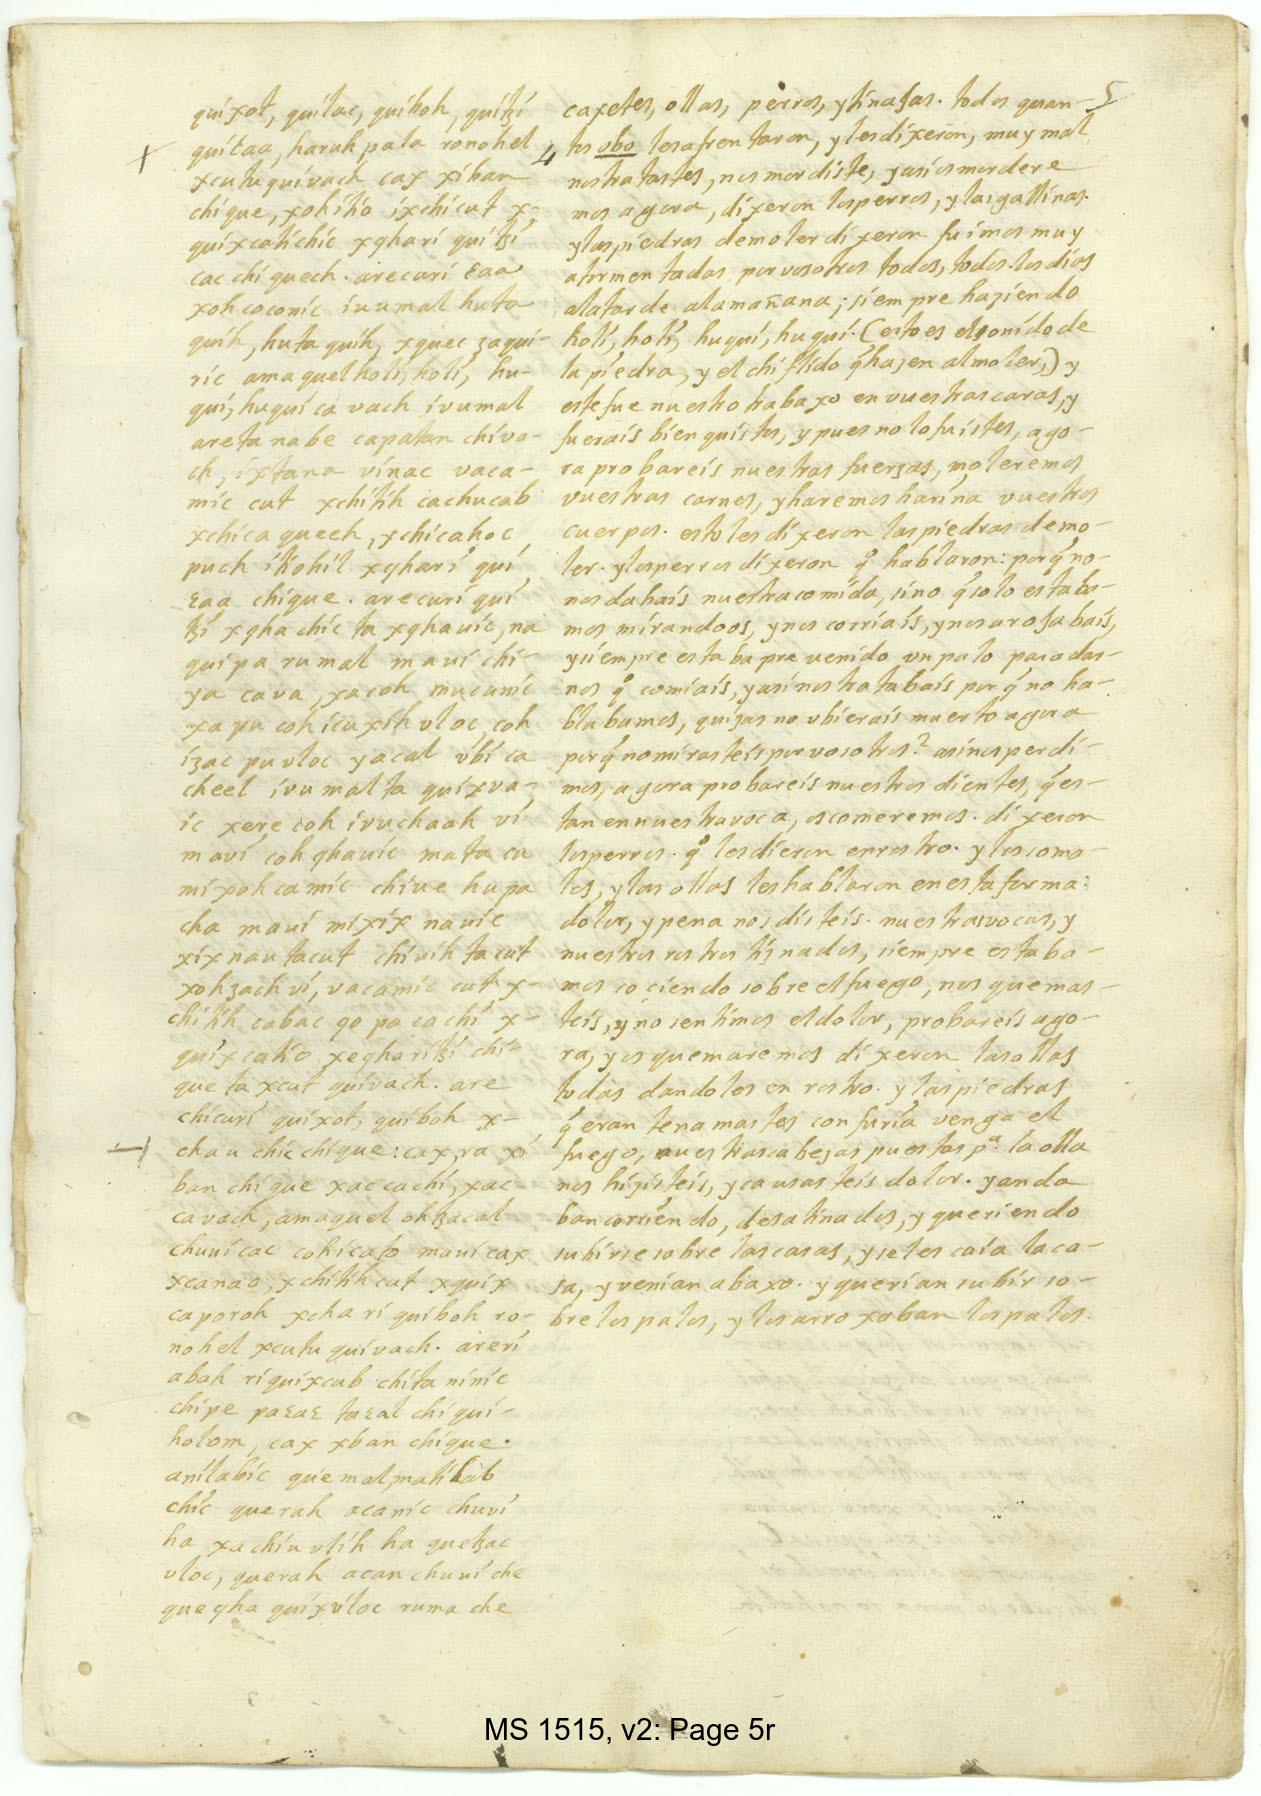 5
quixot, quilac, quiboh, quiꜩi
quiꜫaa, haruh pala ronohel
xcutu quivach cax xiban
chique, xohitio ixchicut x-
quixcatichic xqhari quiꜩi
cac chiquech. arecuri ꜫaa
xohcoconic ivumal huta
quih, huta quih, xquec zaqui-
ric amaquel holi, holi, hu-
qui, huqui ca vach ivumal
areta nabe capatan chiva-
ch, ixtana vinac vaca-
mic cut xchitih cachucab
xchicaqueeh, xchicahoc
puch itiohil xqhari qui
ꜫaa chique. arecuri qui
ꜩi xqhachic ta xqhauic, na
quipa rumal maui chi-
ya cava, xacoh mucunic
xa pu cohicuxih uloc, coh
izac pu uloc yacal ubi ca
cheel ivumal ta quixva-
ic xere coh ivuchaah vi
mavi coh qhauic mata cu
mixohcamic chiue hupa
cha maui mixix nauic
xix nautacut chiuih tacut
xohzach vi, vacamic cut x-
chitih cabac qo pa cachi x-
quixcatio xeqhari ꜩi chi-
que ta xcut quivach. are
chicuri quixot, quiboh x-
chau chic chique: cax, ra xo
ban chique xaccachi, xac
cavach, amaquel oh ꜩacal
chuui cac cohicato maui cax
xcanao, xchitih cut xquix
caporoh xcha ri quiboh ro-
nohel xcutu quivach. areri
abah ri quixcub chita ninic
chipe paꜫaꜫ taꜫal chiqui-
holom, cax xban chique.
anilabic quemalmatihab
chic querah acanic chuui
ha xa chiu ulih ha queꜩac
uloc, querah acan chuui che
queqha quixuloc ruma che
4
caxetes, ollas, perros, y tinajas. todos quan-
tos obo les afrentaron, y les dixeron, muy mal
nos tratastes, nos mordiste, y asi os mordere
mos agora, dixeron los perros, y las gallinas.
y las piedras de moler dixeron fuimos muy
atormentadas por vosotros todos, todos los dias
a la tarde a la mañana; siempre haziendo
holi, holi, huqui, huqui. (esto es el sonido de
la piedra, y el chiflido q̃ hazen al moler,) y
este fue nuestro trabaxo en vuestras caras, y
fuerais bien quistos, y pues no lo fuistes, ago-
ra probareis nuestras fuerzas, moleremos
vuestras carnes, y haremos harina vuestros
cuerpos. esto les dixeron las piedras de mo-
ler. y los perros dixeron qº hablaron: porq̃ no-
nos dabais nuestra comida, sino q̃ solo estaba-
mos mirandoos, y nos corriais, y nos arojabais,
y siempre estaba prevenido un palo para dar-
nos qº comiais, y asi nos tratabais porq̃ no ha-
blabamos, quizas no ubierais muerto agora
porq̃ no mirasteis por vosotros? asi nos perdi-
mos, agora probareis nuestros dientes, q̃ es-
tan en nuestra voca, os comeremos. dixeron
los perros. qº les dieron en rostro. y los coma-
les, y las ollas les hablaron en esta forma:
dolor, y pena nos disteis. nuestras vocas, y
nuestros rostros tiznados, siempre estaba-
mos cociendo sobre el fuego, nos quemas-
teis, y no sentimos el dolor, probareis ago-
ra, y os quemaremos dixeron las ollas
todas dandoles en rostro. y las piedras
q̃ eran tenamastes con furia venga el
fuego, nuestras cabezas puestas pª. la olla
nos hizisteis, y causasteis dolor. y anda
ban corriendo, desatinados, y queriendo
subirse sobre las casas, y se les caia la ca-
sa, y venian abaxo. y querian subir so-
bre los palos, y los arroxaban los palos.
MS 1515, v2: Page 5r